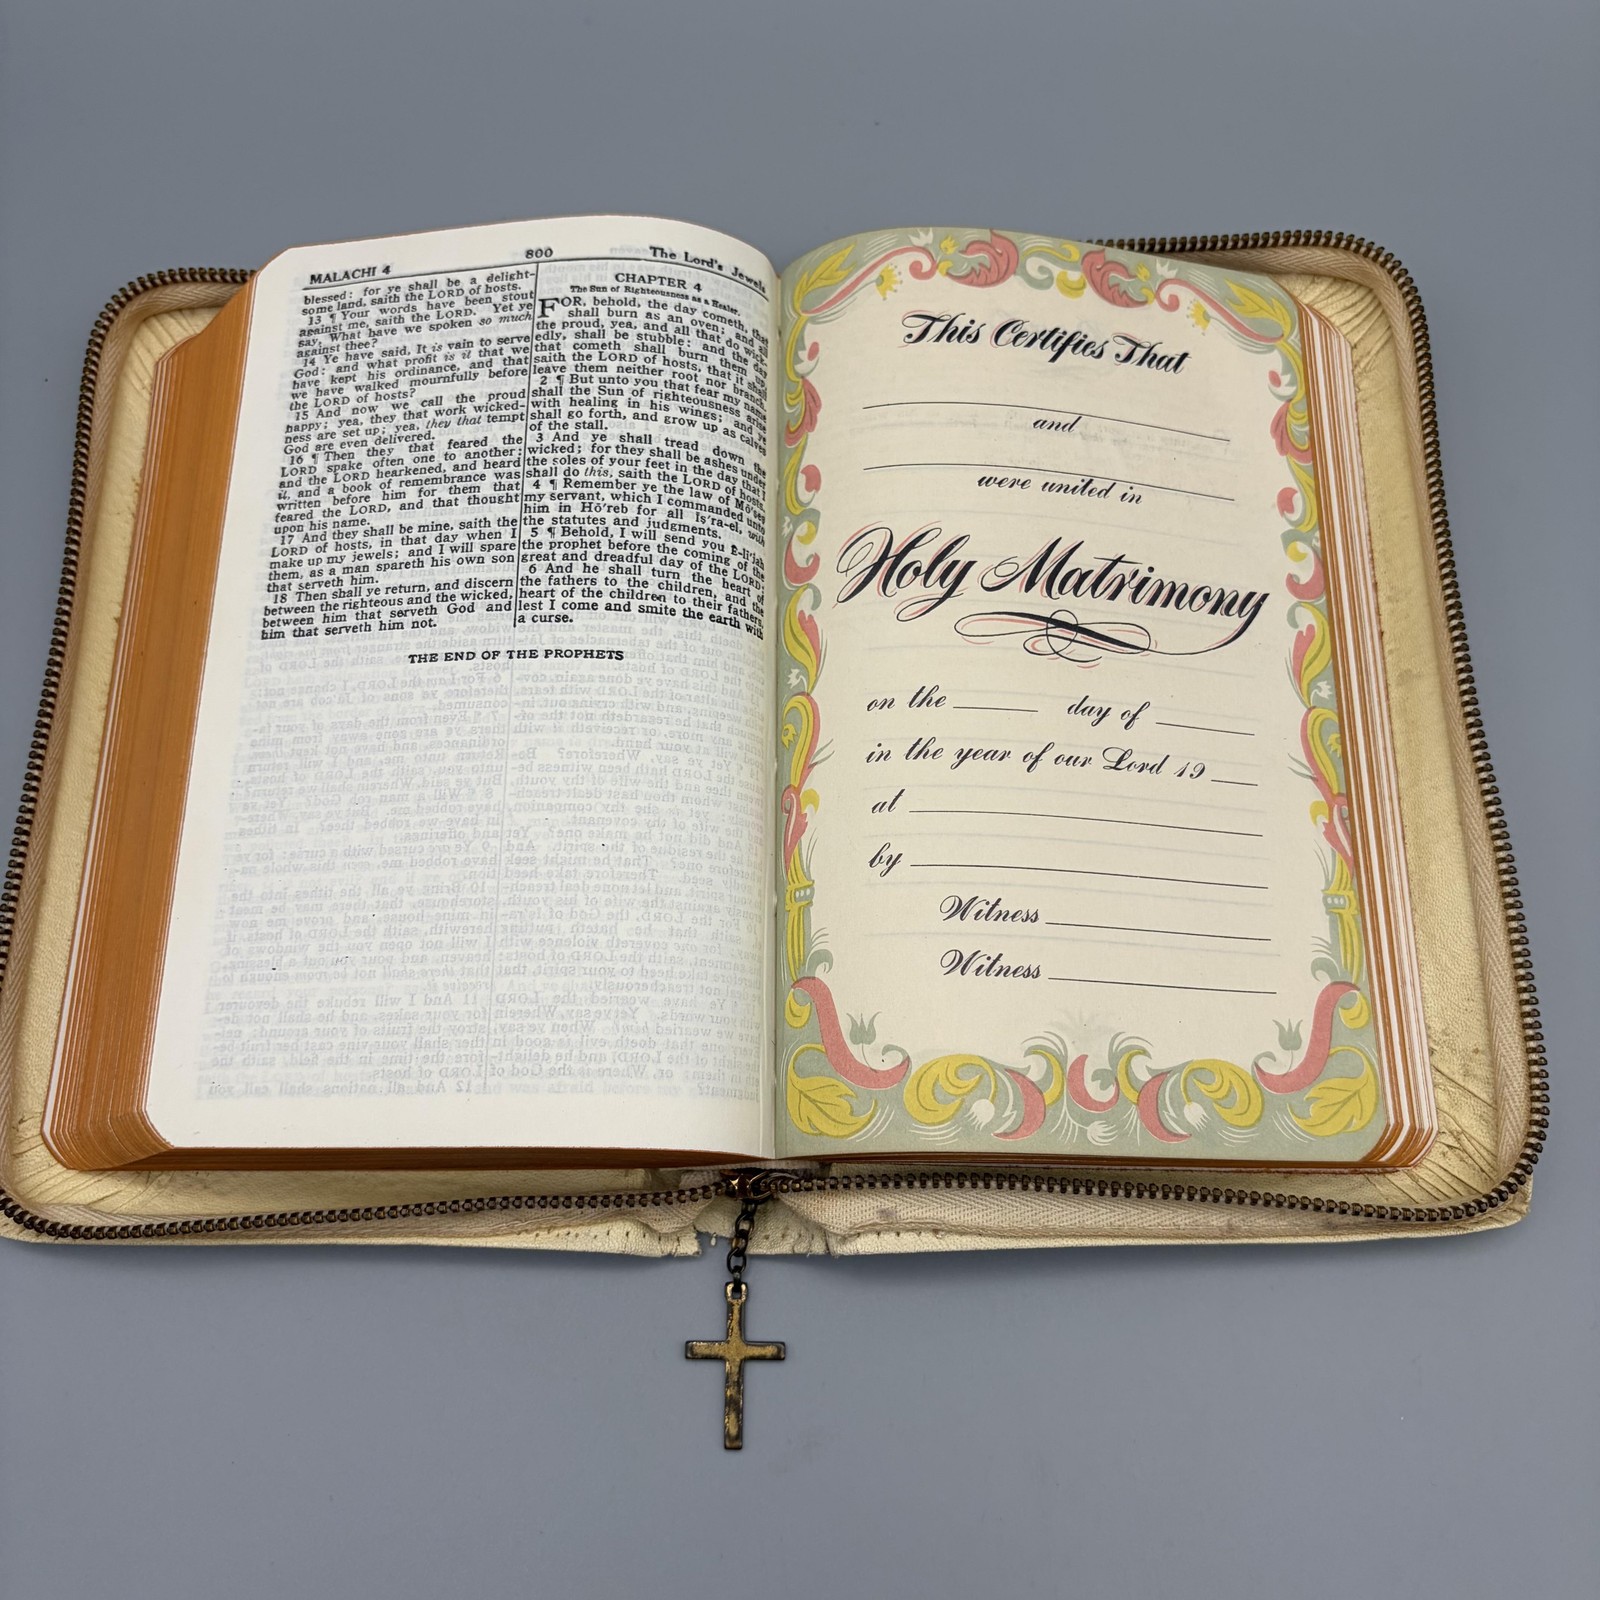 MALACHI 4
800
The Lord's Jewels
blessed: for ye shall be a delight-
some land, saith the LORD of hosts.
13 ¶ Your words have been stout
against me, saith the LORD. Yet ye
say, What have we spoken so much
against thee?
14 Ye have said, It is vain to serve
God: and what profit is it that we
have kept his ordinance, and that
we have walked mournfully before
the LORD of hosts?
15 And now we call the proud
happy; yea, they that work wicked-
ness are set up; yea, they that tempt
God are even delivered.
16 ¶ Then they that feared the
LORD spake often one to another:
and the LORD hearkened, and heard
it, and a book of remembrance was
written before him for them that
feared the LORD, and that thought
upon his name.
17 And they shall be mine, saith the
LORD of hosts, in that day when I
make up my jewels; and I will spare
them, as a man spareth his own son
that serveth him.
18 Then shall ye return, and discern
between the righteous and the wicked,
between him that serveth God and
him that serveth him not.
CHAPTER 4
The Sun of Righteousness as a Healer.
FOR, behold, the day cometh, that
shall burn as an oven; and all
the proud, yea, and all that do wick-
edly, shall be stubble: and the day
that cometh shall burn them up,
saith the LORD of hosts, that it shall
leave them neither root nor branch.
2 ¶ But unto you that fear my name
shall the Sun of righteousness arise
with healing in his wings; and ye
shall go forth, and grow up as calves
of the stall.
3 And ye shall tread down the
wicked; for they shall be ashes under
the soles of your feet in the day that I
shall do this, saith the LORD of hosts.
4 ¶ Remember ye the law of Mō'ses
my servant, which I commanded unto
him in Hō'reb for all Iṣ'ra-el, with
the statutes and judgments.
5 ¶ Behold, I will send you Ē-lī'jah
the prophet before the coming of the
great and dreadful day of the LORD:
6 And he shall turn the heart of
the fathers to the children, and the
heart of the children to their fathers,
lest I come and smite the earth with
a curse.
THE END OF THE PROPHETS
This Certifies That
and
were united in
Holy Matrimony
on the day of
in the year of our Lord 19
at
by
Witness
Witness